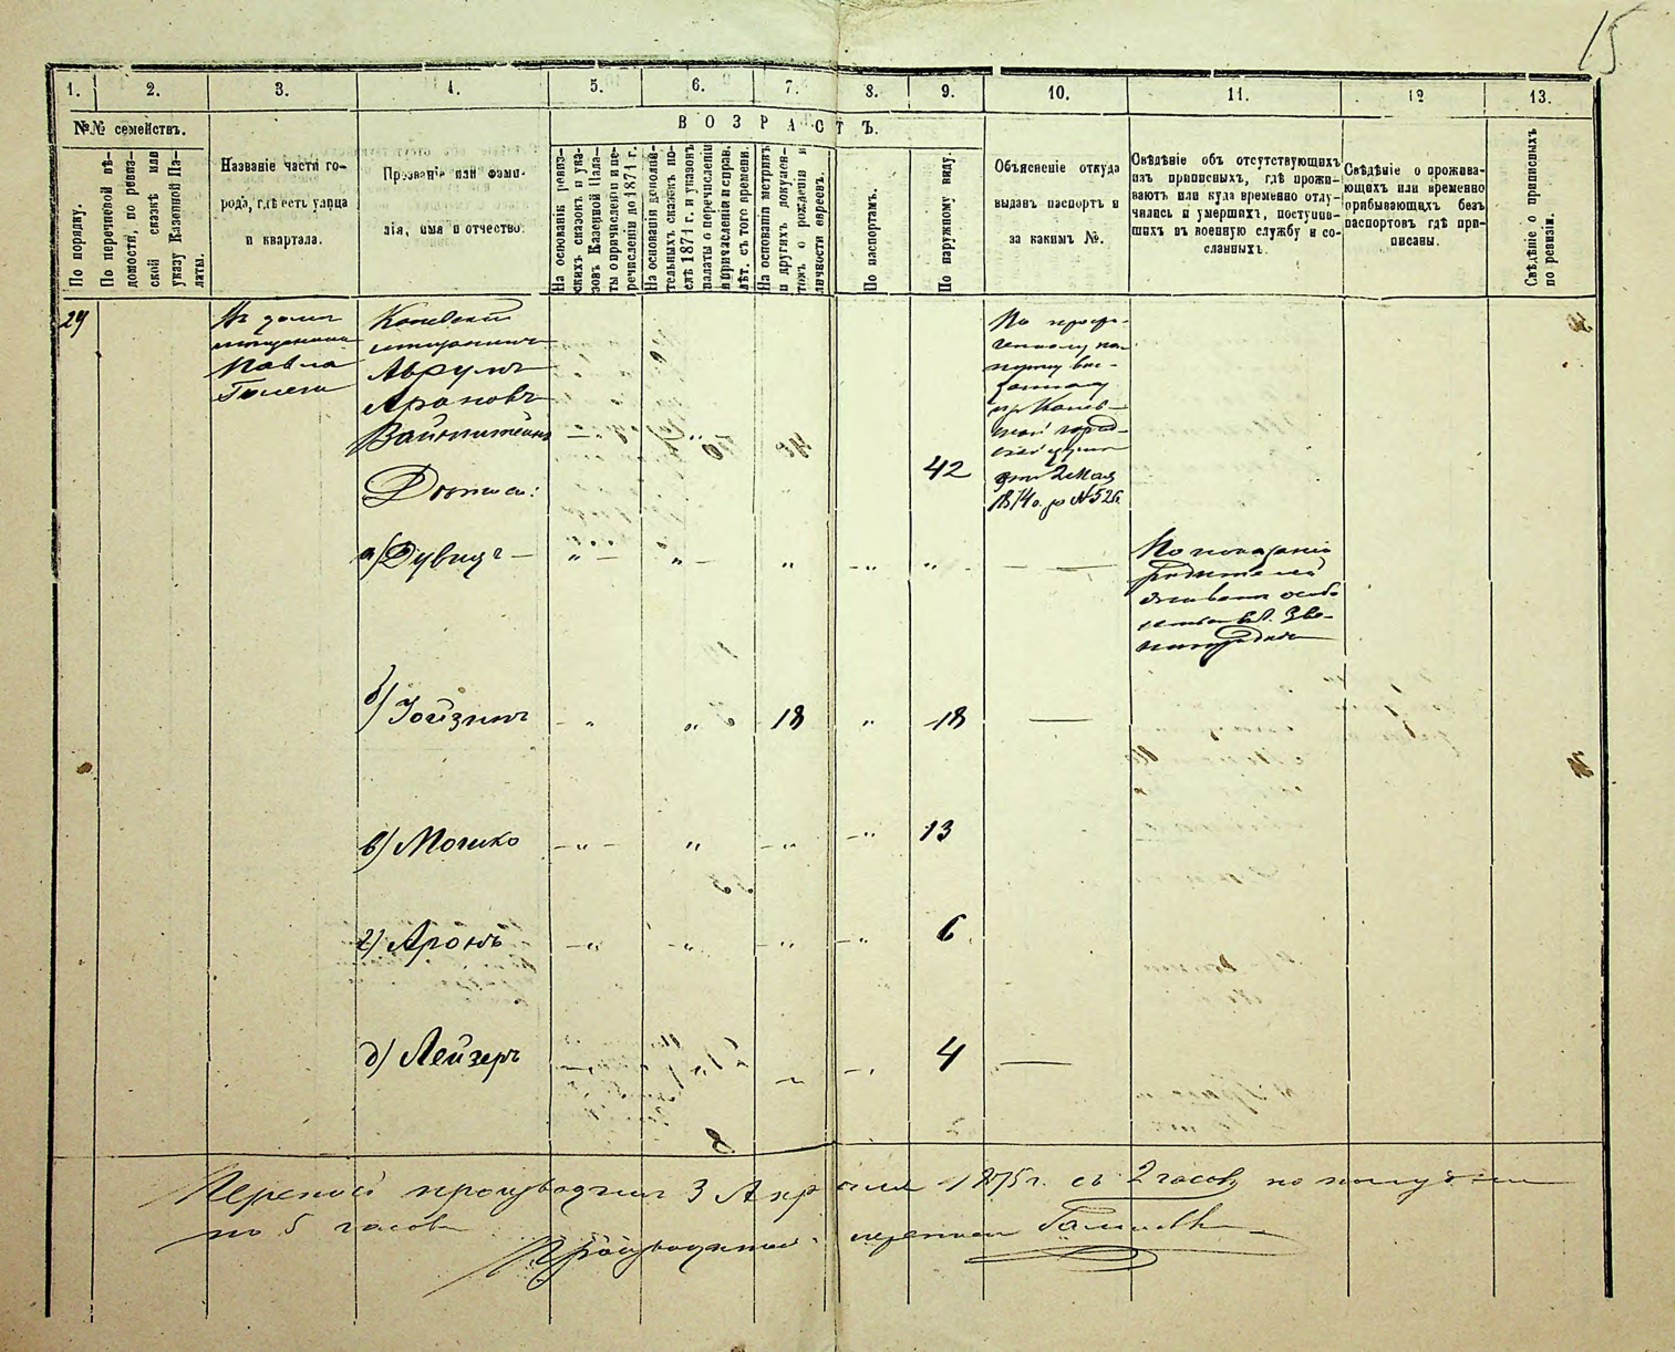 15
1. 2. 3. 4. 5. 6. 7. 8. 9. 10. 11. 12 13.
№№ семействъ.
По порядку.
По перечневой вѣ-
домости, по ревиз-
ской сказкѣ или
указу Казенной Па-
латы.
Названіе части го-
рода, гдѣ есть улица
и квартала.
Прозваніе или фами-
лія, имя и отчество.
ВОЗРАСТЪ.
На основаніи ревиз-
скихъ сказокъ и ука-
зовъ Казенной Пала-
ты о причисленіи и пе-
речисленіи до 1874 г.
На основаніи дополни-
тельныхъ сказокъ по-
слѣ 1874 г. и указовъ
палаты о перечисленіи
и причисленіи и справ.
лѣт. съ того времени.
На основаніи метрикъ
и другихъ докумен-
товъ о рожденіи и
личности евреевъ.
По паспортамъ.
По наружному виду.
Объясненіе откуда
выданъ паспортъ и
за какимъ №.
Свѣдѣніе объ отсутствующихъ
изъ приписныхъ, гдѣ прожи-
ваютъ или куда временно отлу-
чились и умершихъ, поступив-
шихъ въ военную службу и со-
сланныхъ.
Свѣдѣніе о прожива-
ющихъ или временно
прибывающихъ безъ
паспортовъ гдѣ при-
писаны.
Свѣдѣніе о приписныхъ
по ревизіи.
29
Въ домѣ
мѣщанина
Павла
Каневскій
мѣщанинъ
Аврумъ
Ароновъ
Вайнштейнъ
42
По
выданному
изъ Канев-
ской город-
ской думы
отъ 2 Мая
1874 г. за №526
Дѣти его:
а) Дувидъ — " — " — " — " " — —
По показанію
родителей
Зве-
нигородкѣ
б) Іойзипъ — " " 18 " 18 —
в) Мошко — " — " — " — " 13
г) Аронъ — " — " — " — " 6
д) Лейзеръ 4 —
Перепись произведена 3 Апрѣля 1875 г. съ 2 часовъ по полудни
по 5 часовъ
Производившій перепись